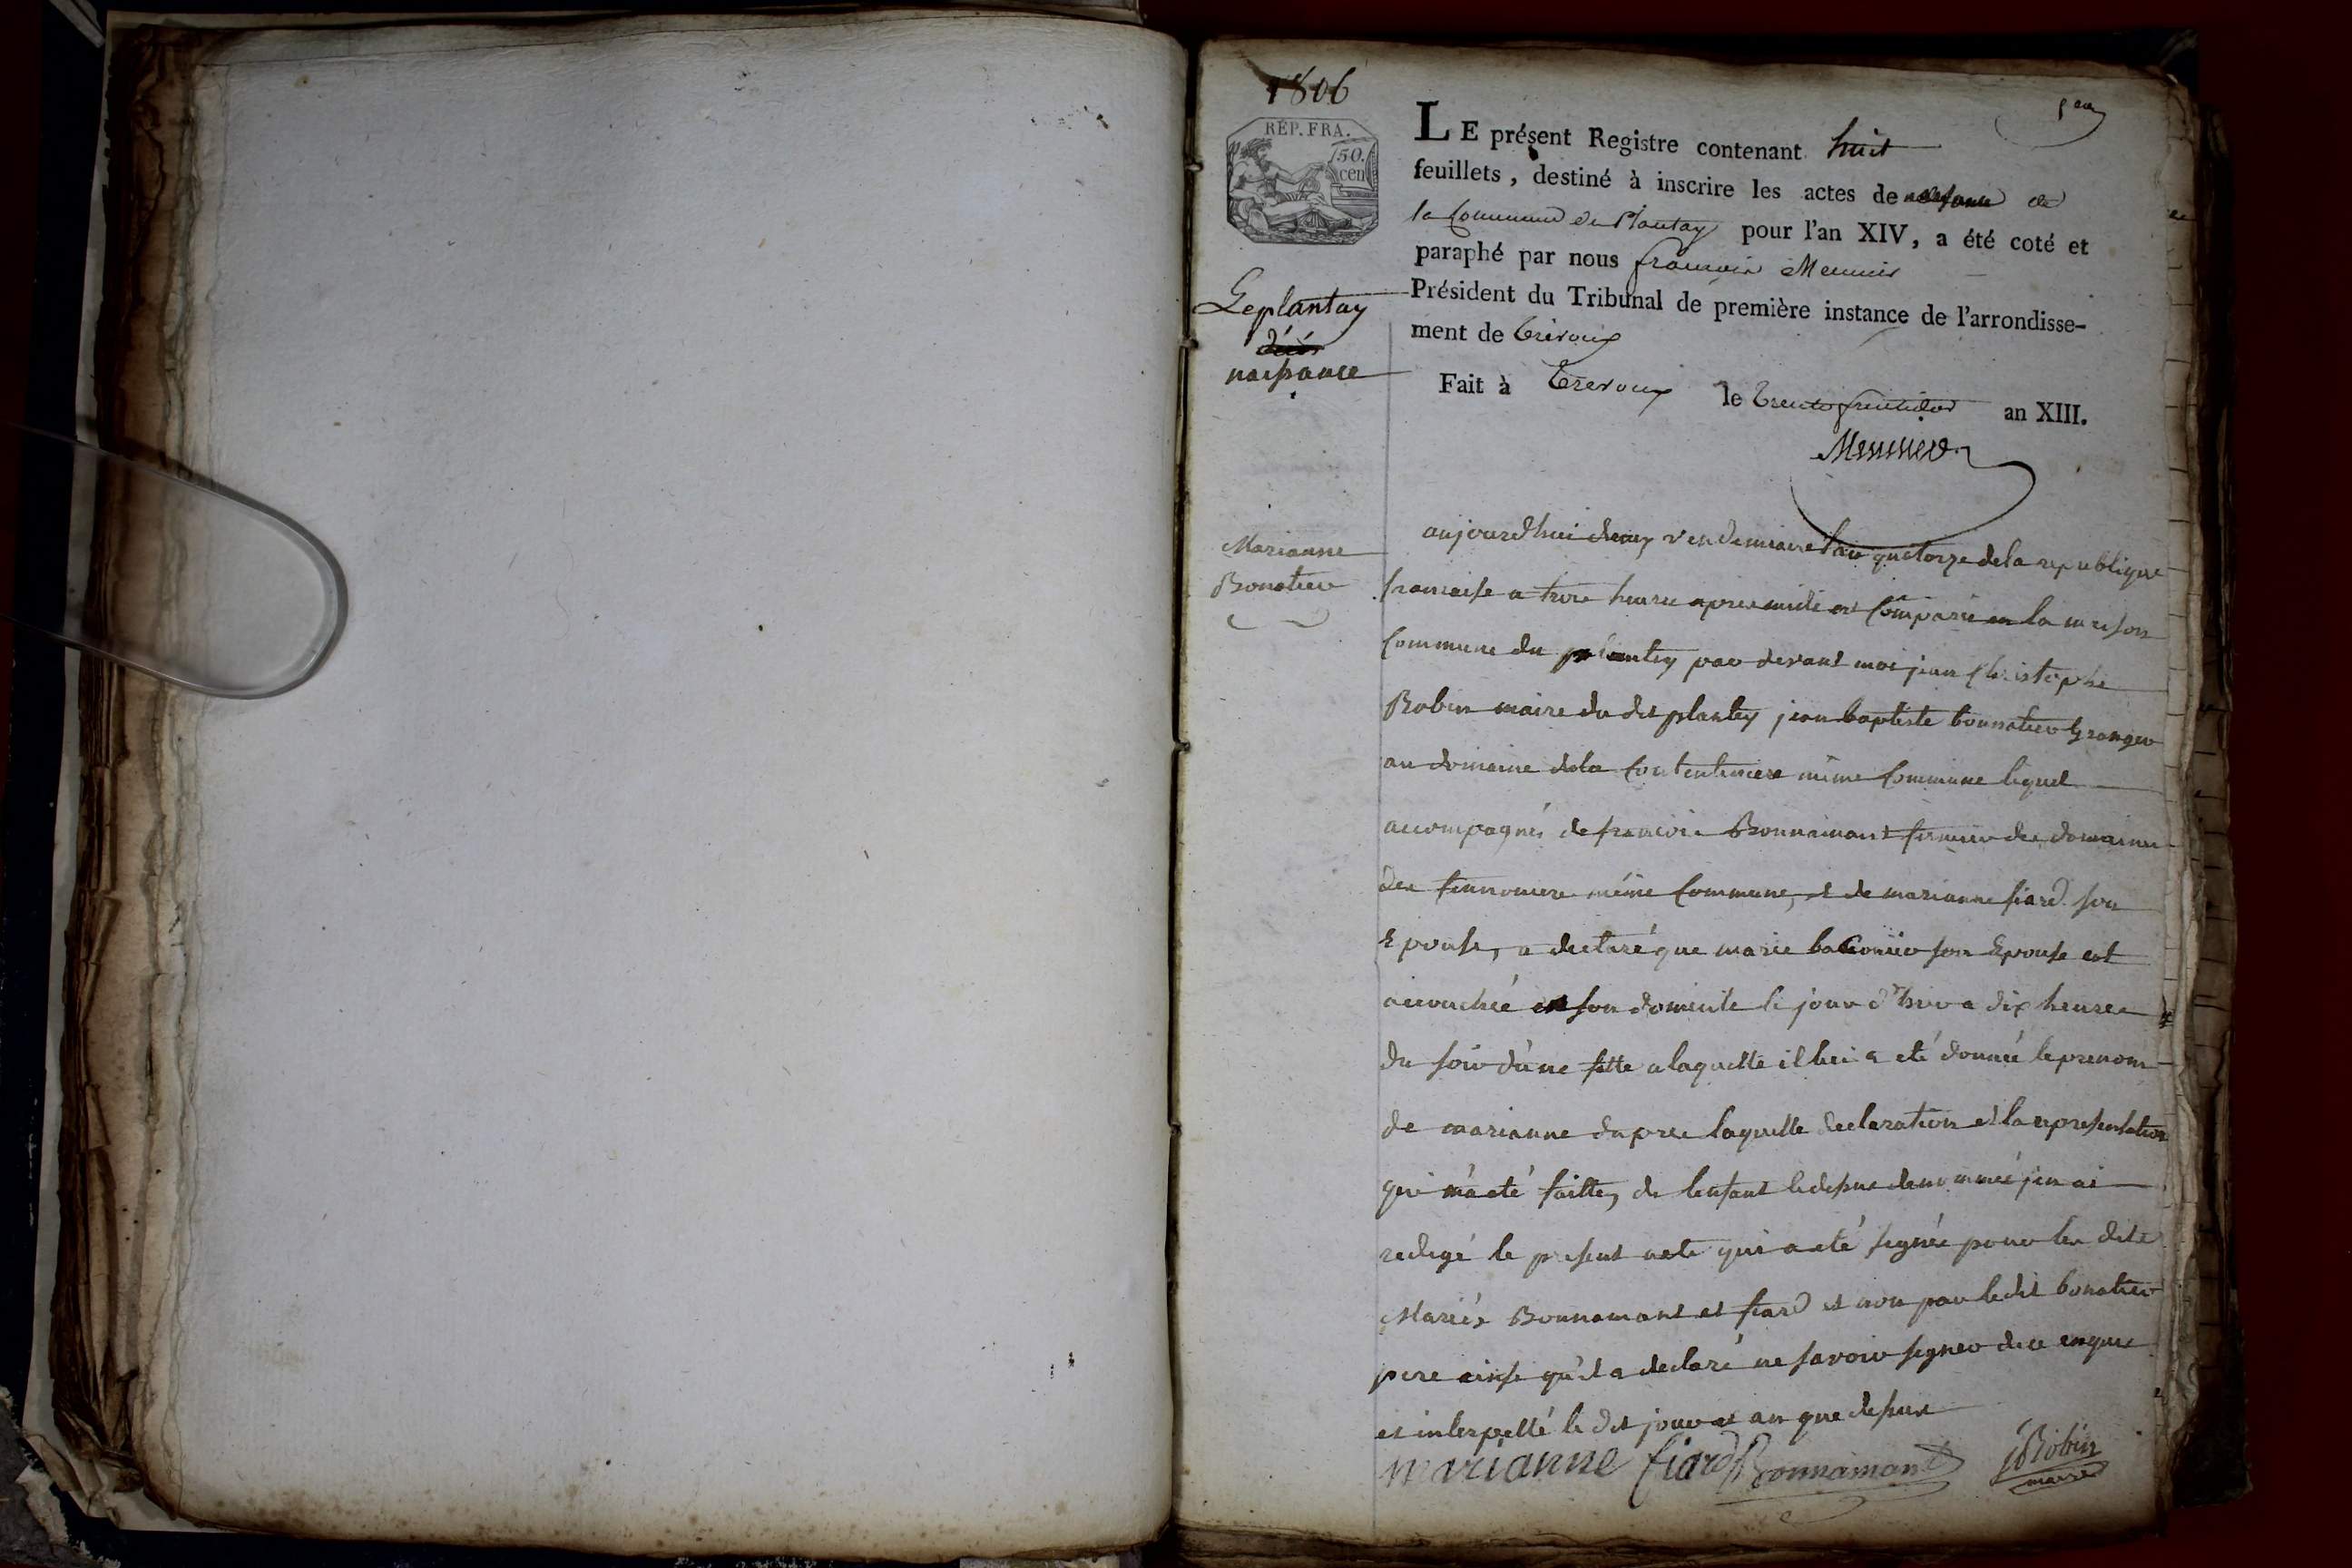 1806
1er
RÉP. FRA.
50.
cen
LE présent Registre contenant huit
feuillets, destiné à inscrire les actes de naissance de
la Commune du Plantay pour l'an XIV, a été coté et
paraphé par nous françois Meunier
Président du Tribunal de première instance de l'arrondisse-
ment de trévoux
Fait à trevoux le trente fructidor an XIII.
Meunier
Le plantay
décès
naissance
Marianne
Bonatier
aujourdhui deux vendemiaire l'an quatorze de la republique
francaise a trois heures apres midi est comparu en la maison
commune du plantey par devant moi jean christophe
Robin maire du dit plantey jean baptiste bonnatier granger
au domaine de la même commune lequel
accompagné de francois Bonnamant fermier des domaines
des même commune, et de marianne fiard son
Epouse, a declaré que marie son Epouse est
accouchée en son domicile le jour d'hier a dix heures
du soir d'une fille a laquelle il lui a eté donné le prenom
de marianne dapres laquelle declaration et la representation
qui m'a eté faitte, de lenfant ledessus denommée jen ai
redigé le present acte qui a eté signée pour les dits
Mariés Bonnamant et fiard et non par ledit bonatier
pere ainsi qu'il a declaré ne savoir signer de ce enquis
et interpellé le dit jour et an que dessus
marianne fiard Bonnamant JRobin
maire